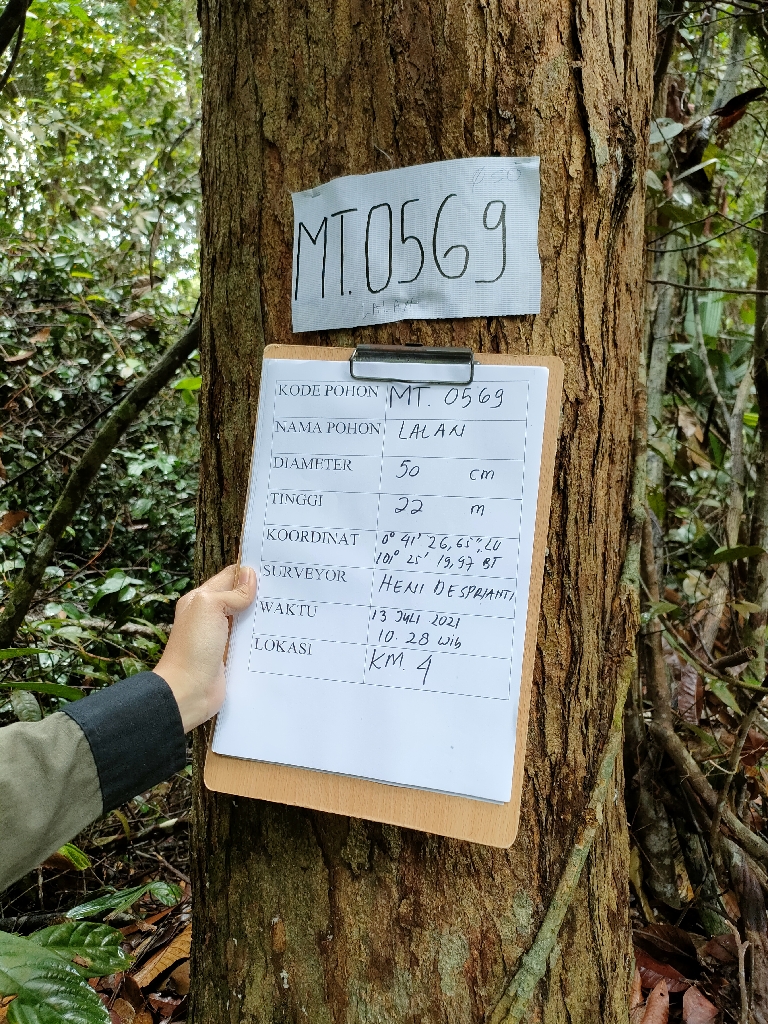 MT.0569
KODE POHON MT. 0569
NAMA POHON LALAN
DIAMETER 50 cm
TINGGI 22 m
KOORDINAT 0° 41' 26,65", LU
101° 25' 19,97 BT
SURVEYOR HENI DESPRIANTI
WAKTU 13 JULI 2021
10.28 Wib
LOKASI KM. 4